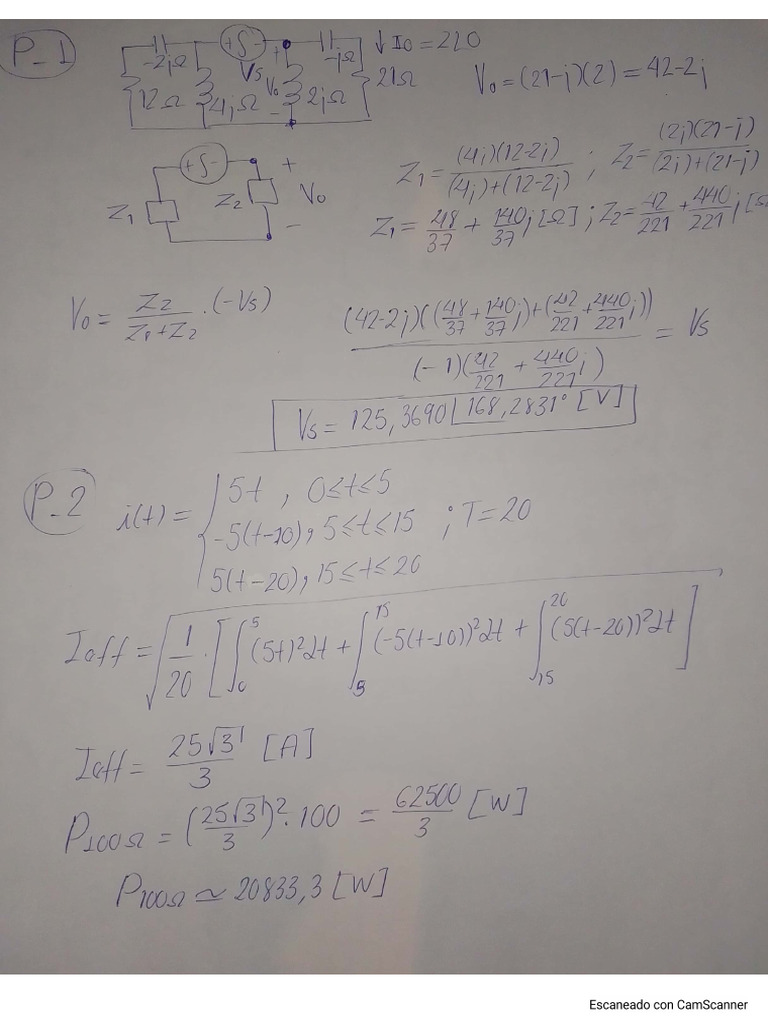 P_1
-2jΩ + - -jΩ ↓ I0 = 2∠0
Vs + V0 - 21Ω
12Ω 4jΩ 2jΩ
V0 = (21-j)(2) = 42-2j
+ - +
Z1 Z2 V0
-
Z1 = (4j)(12-2j)/((4j)+(12-2j)) ; Z2 = (2j)(21-j)/((2j)+(21-j))
Z1 = 48/37 + 140/37 j [Ω] ; Z2 = 42/221 + 440/221 j [Ω
V0 = Z2/(Z1+Z2) · (-Vs)
(42-2j)((48/37 + 140/37 j)+(42/221 + 440/221 j))/((-1)(42/221 + 440/221 j)) = Vs
Vs = 125,3690 ∠168,2831° [V]
P_2
i(t) = { 5t , 0≤t≤5
-5(t-10), 5≤t≤15 ; T=20
5(t-20), 15≤t≤20
Ieff = √(1/20 · [∫₀⁵ (5t)² dt + ∫₅¹⁵ (-5(t-10))² dt + ∫₁₅²⁰ (5(t-20))² dt])
Ieff = 25√3/3 [A]
P100Ω = (25√3/3)² · 100 = 62500/3 [W]
P100Ω ≃ 20833,3 [W]
Escaneado con CamScanner